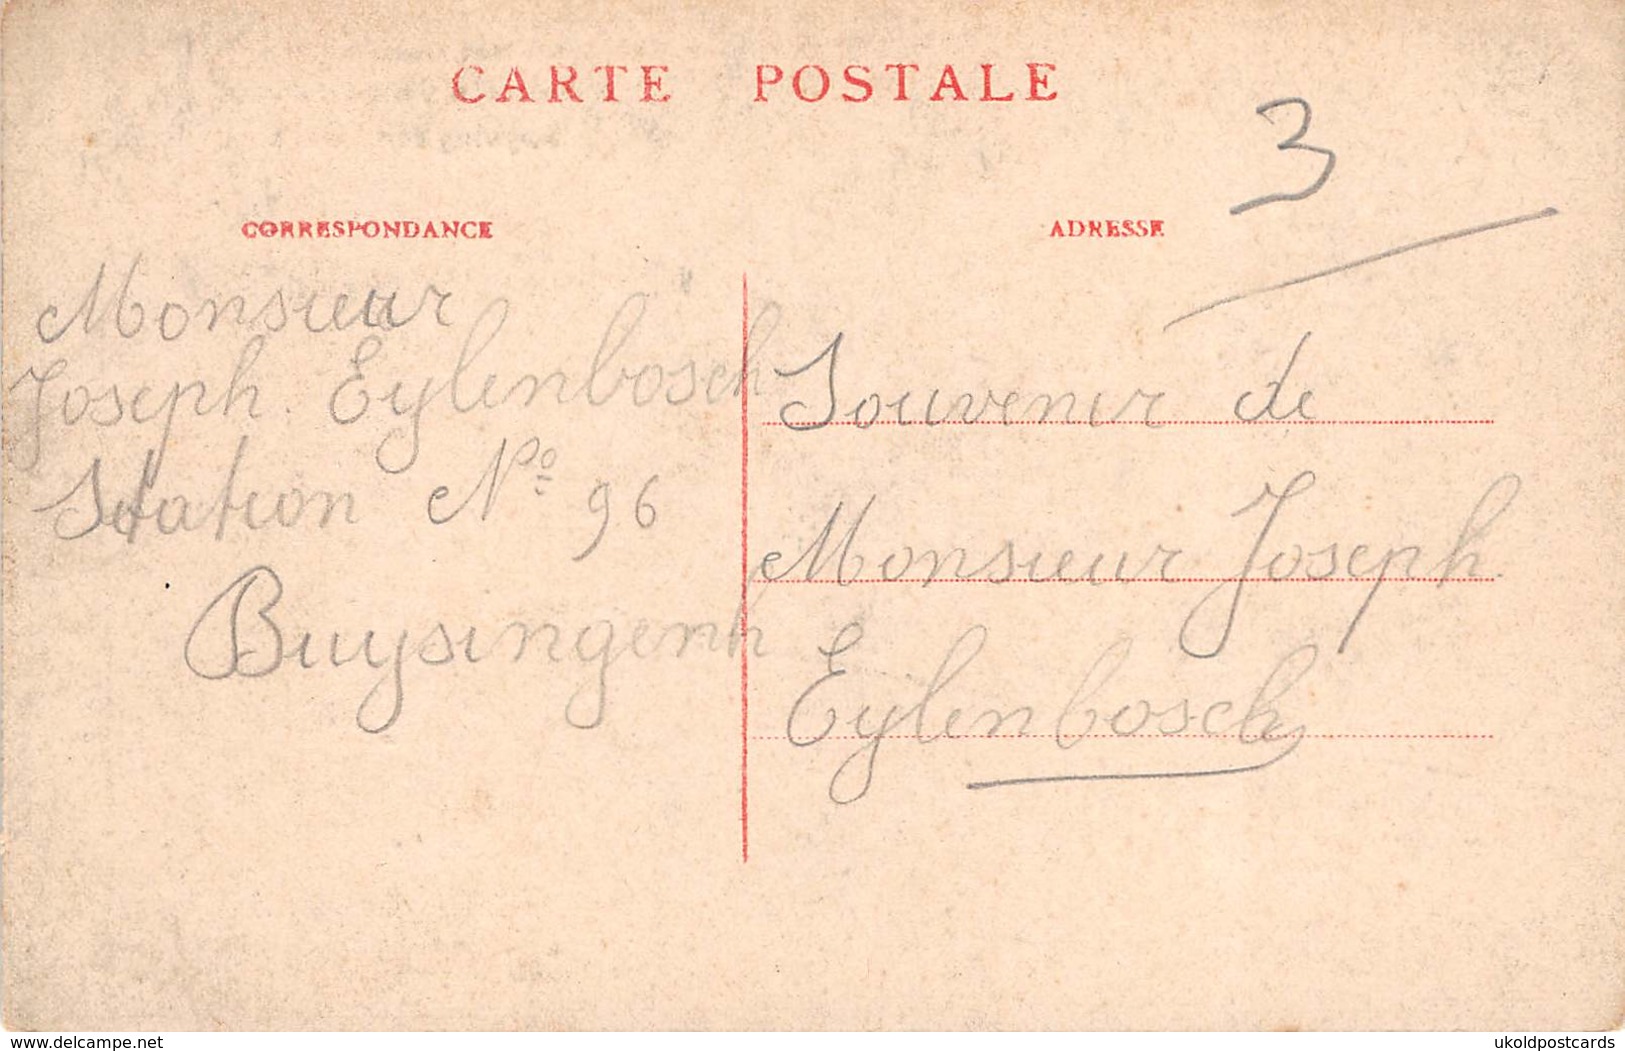 CARTE POSTALE
3
CORRESPONDANCE
Monsieur
Joseph Eylenbosch
Station Nº 96
Buysingenh
ADRESSE
Souvenir de
Monsieur Joseph
Eylenbosch
delcampe.net
ukoldpostcards